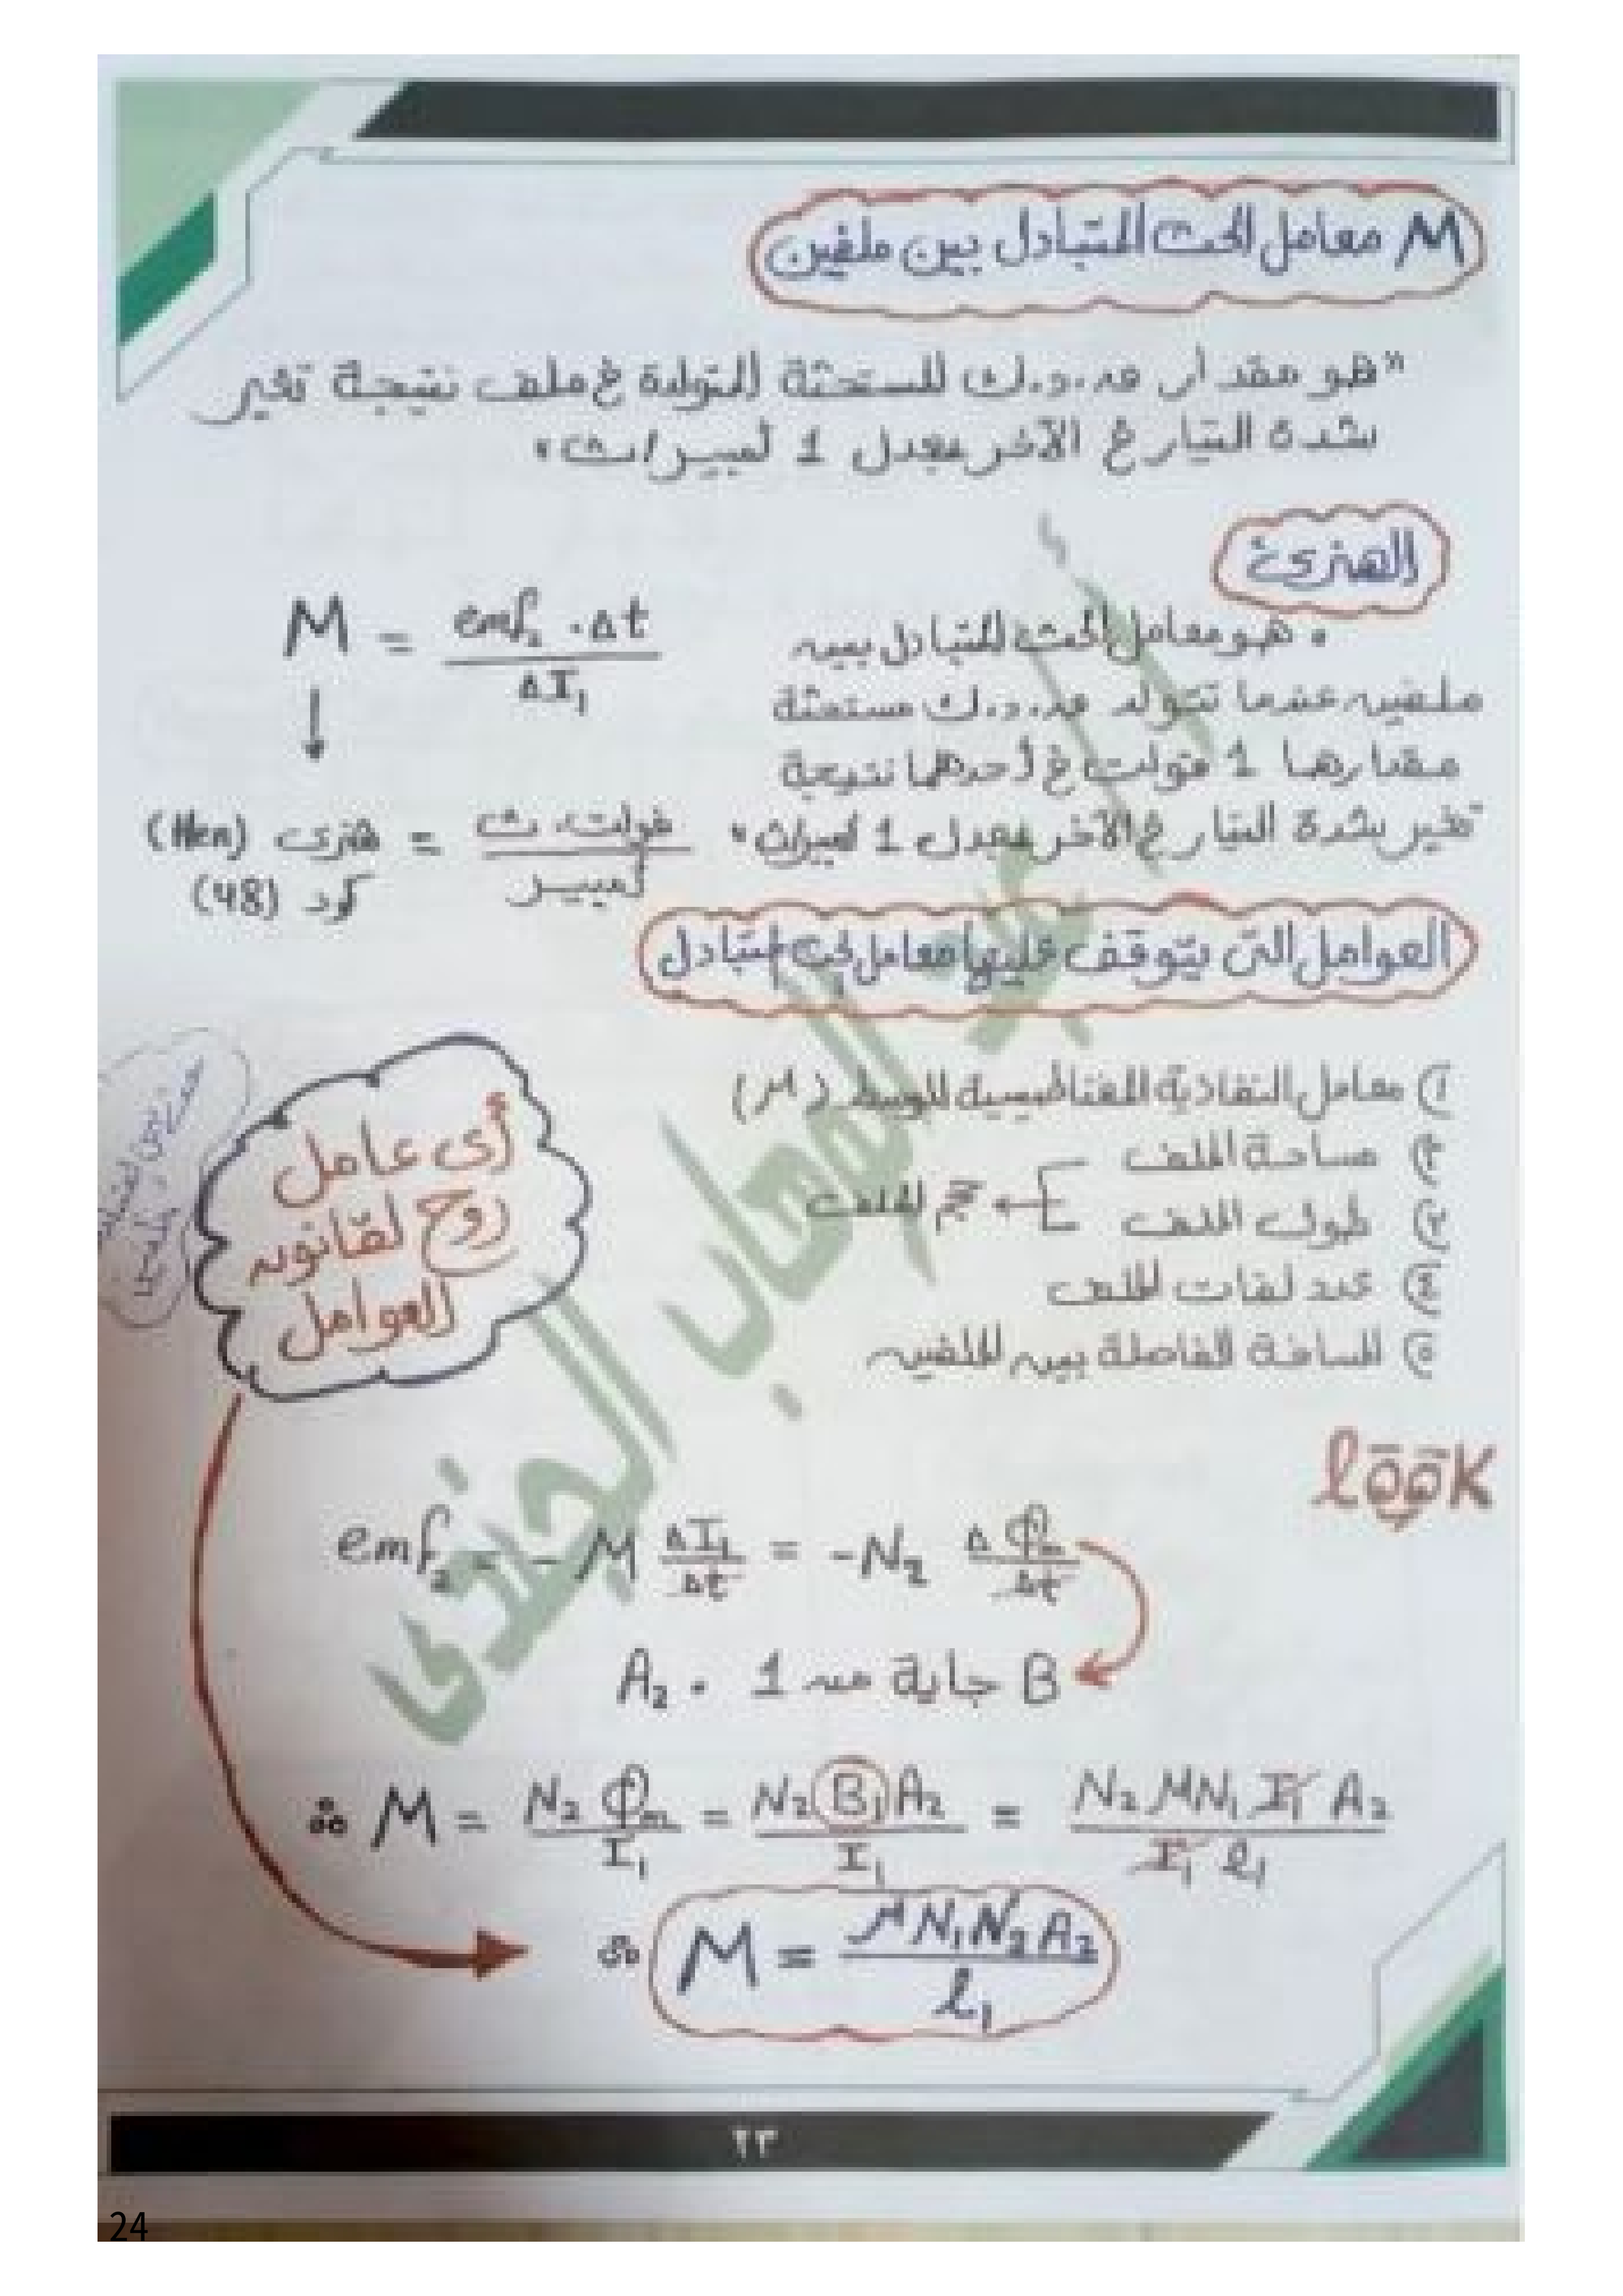 M معامل الحث المتبادل بين ملفين
"هو مقدار ق.د.ك المستحثة المتولدة في ملف نتيجة تغير
شدة التيار في الآخر بمعدل 1 أمبير/ث"
الهنري
• هو معامل الحث المتبادل بين
ملفين عندما تتولد ق.د.ك مستحثة
مقدارها 1 فولت في أحدهما نتيجة
تغير شدة التيار في الآخر بمعدل 1 أمبير/ث"
M = emf₂ . Δt / ΔI₁
↓
فولت.ث / أمبير = هنرى (Hen)
كود (48)
العوامل التى يتوقف عليها معامل الحث المتبادل
١) معامل النفاذية المغناطيسية للوسط (μ)
٢) مساحة الملف
٣) طول الملف
← حجم الملف
٤) عدد لفات الملف
٥) المسافة الفاصلة بين الملفين
أى عامل
روح لقانون
العوامل
look
emf₂ = - M ΔI₁/Δt = -N₂ Δφm/Δt
B جاية من 1 . A₂
∴ M = N₂ φm / I₁ = N₂ B₁ A₂ / I₁ = N₂ μ N₁ I₁ A₂ / I₁ l₁
∴ M = μ N₁ N₂ A₂ / l₁
الوهاب الجندى
٢٣
24